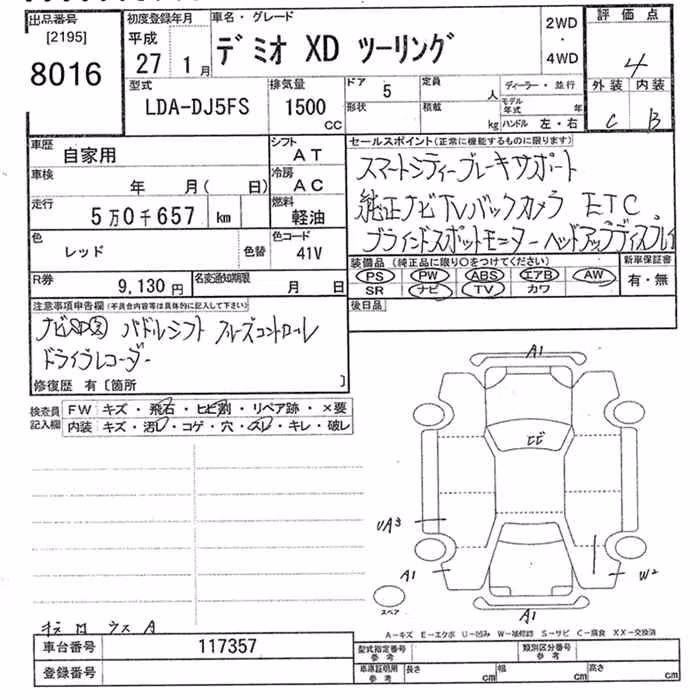 出品番号
[2195]
8016
初度登録年月
平成
27 1月
車名・グレード
デミオ XD ツーリング
2WD
・
4WD
評価点
4
外装 内装
C B
型式
LDA-DJ5FS
排気量
1500
CC
ドア 5
形状
定員 人
積載 kg
ディーラー・並行
モデル年式 年
ハンドル 左・右
車歴
自家用
シフト
AT
車検
年 月( 日)
冷房
AC
走行
5万0千657 km
燃料
軽油
色
レッド
色替
色コード
41V
R券
9,130円
名変通知期限
月 日
セールスポイント(正常に機能するものに限ります)
スマートシティーブレーキサポート
純正ナビTVバックカメラ ETC
ブラインドスポットモニター ヘッドアップディスプレイ
装備品(純正品に限り○をつけてください)
PS PW ABS エアB AW
SR ナビ TV カワ
新車保証書
有・無
後日品
注意事項申告欄(不具合内容等は具体的に記入して下さい)
パドルシフト クルーズコントロール
ドライブレコーダー
修復歴 有〔箇所 〕
検査員記入欄
FW キズ・飛石・ヒビ割・リペア跡・×要
内装 キズ・汚レ・コゲ・穴・スレ・キレ・破レ
A1
ヒビ
UA3
A1
W2
スペア
A1
A-キズ E-エクボ U-凹み W-補修跡 S-サビ C-腐食 XX-交換済
車台番号
117357
登録番号
型式指定番号
参考
類別区分番号
参考
車庫証明用
参考
長さ cm
幅 cm
高さ cm